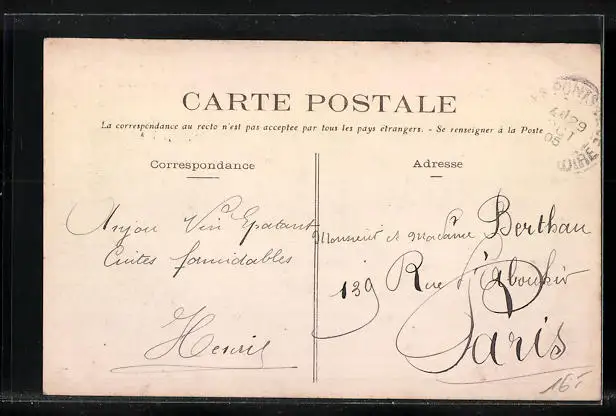 CARTE POSTALE
La correspondance au recto n'est pas acceptee par tous les pays étrangers. - Se renseigner à la Poste
Correspondance
Adresse
Anjou Vin Epatant
Cuites formidables
Henri
Monsieur et Madame Berthau
139 Rue d'Aboukir
Paris
PONTS
29
05
LOIRE
16